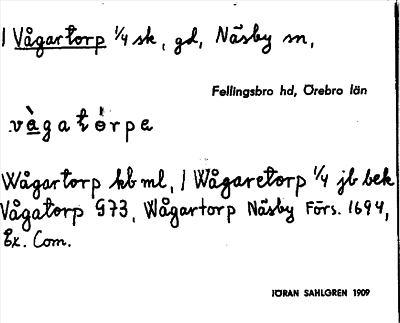 1 Vågartorp 1/4 sk, gd, Näsby sn,
Fellingsbro hd, Örebro län
vàgatórpa
Wågartorp kb ml, 1 Wågaretorp 1/4 jb bek
Vågatorp G73, Wågartorp Näsby Förs. 1694,
Ex. Com.
JÖRAN SAHLGREN 1909